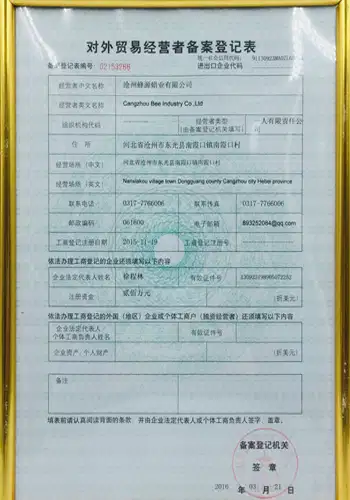 对外贸易经营者备案登记表
备案登记表编号: 02153268
进出口企业代码
经营者中文名称 沧州蜂源蜡业有限公司
经营者英文名称 Cangzhou Bee Industry Co.,Ltd
组织机构代码 经营者类型 一人有限责任公司
(由备案登记机关填写)
住 所 河北省沧州市东光县南霞口镇南霞口村
经营场所(中文) 河北省沧州市东光县南霞口镇南霞口村
经营场所(英文) Nanxiakou village town Dongguang county Cangzhou city Hebei province
联系电话 0317-7766006 联系传真 0317-7766006
邮政编码 061600 电子邮箱 893252084@qq.com
工商登记注册日期 2015-11-19 工商登记注册号
依法办理工商登记的企业还须填写以下内容
企业法定代表人姓名 徐程林 有效证件号
注册资金 贰佰万元 (折美元)
依法办理工商登记的外国(地区)企业或个体工商户(独资经营者)还须填写以下内容
企业法定代表人/
个体工商负责人姓名 有效证件号
企业资产/个人财产 (折美元)
备注
填表前请认真阅读背面的条款,并由企业法定代表人或个体工商负责人签字、盖章。
备案登记机关
签 章
2016 03 21